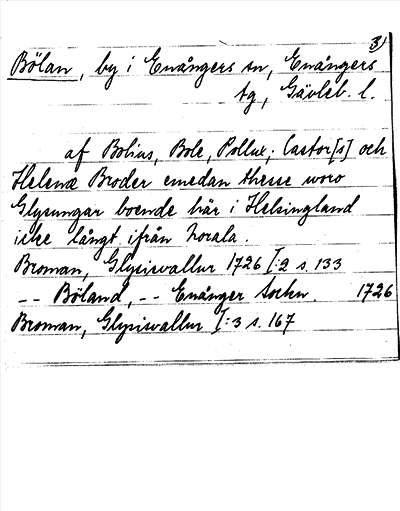 3)
Bölan, by i Enångers sn, Enångers
tg, Gävleb. l.
af Bolius, Bole, Pollux, Castor[s] och
Helenæ Broder emedan thesse woro
Glysungar boende här i Helsingland
icke långt ifrån Norala.
Broman, Glysisvallur 1726 I:2 s. 133
-- Böland, -- Enånger Sochn. 1726
Broman, Glysisvallur I:3 s. 167